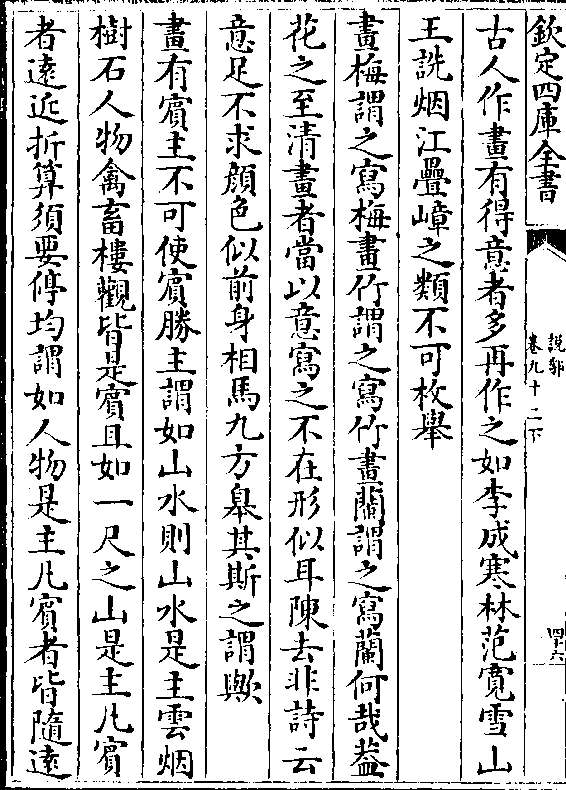 欽定四庫全書
說郛
卷九十二下
四十六
古人作畫有得意者多再作之如李成寒林范寬雪山
王詵烟江疊嶂之類不可枚舉
畫梅謂之寫梅畫竹謂之寫竹畫蘭謂之寫蘭何哉葢
花之至清畫者當以意寫之不在形似耳陳去非詩云
意足不求顔色似前身相馬九方臯其斯之謂歟
畫有賓主不可使賓勝主謂如山水則山水是主雲烟
樹石人物禽畜樓觀皆是賓且如一尺之山是主凡賓
者遠近折算須要停均謂如人物是主凡賓者皆隨遠